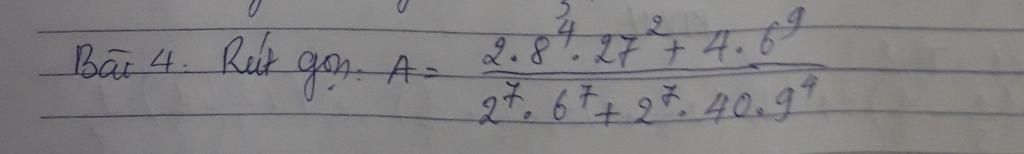 Bài 4. Rút gọn: A = (2.8^4.27^2 + 4.6^9) / (2^7.6^7 + 2^7.40.9^4)